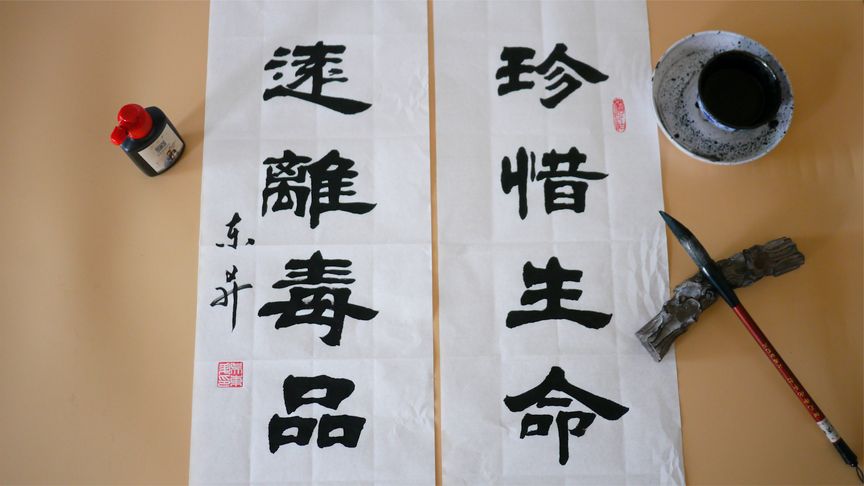 珍惜生命
遠離毒品
东昇